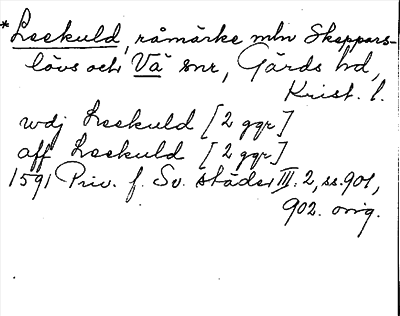 *Leekuld, råmärke mln Skeppars-
lövs och Vä snr, Gärds hd,
Krist. l.
wdj Leekuld [2 ggr]
aff Leekuld [2 ggr]
1591 Priv. f. Sv. städer III. 2, ss. 901,
902. orig.